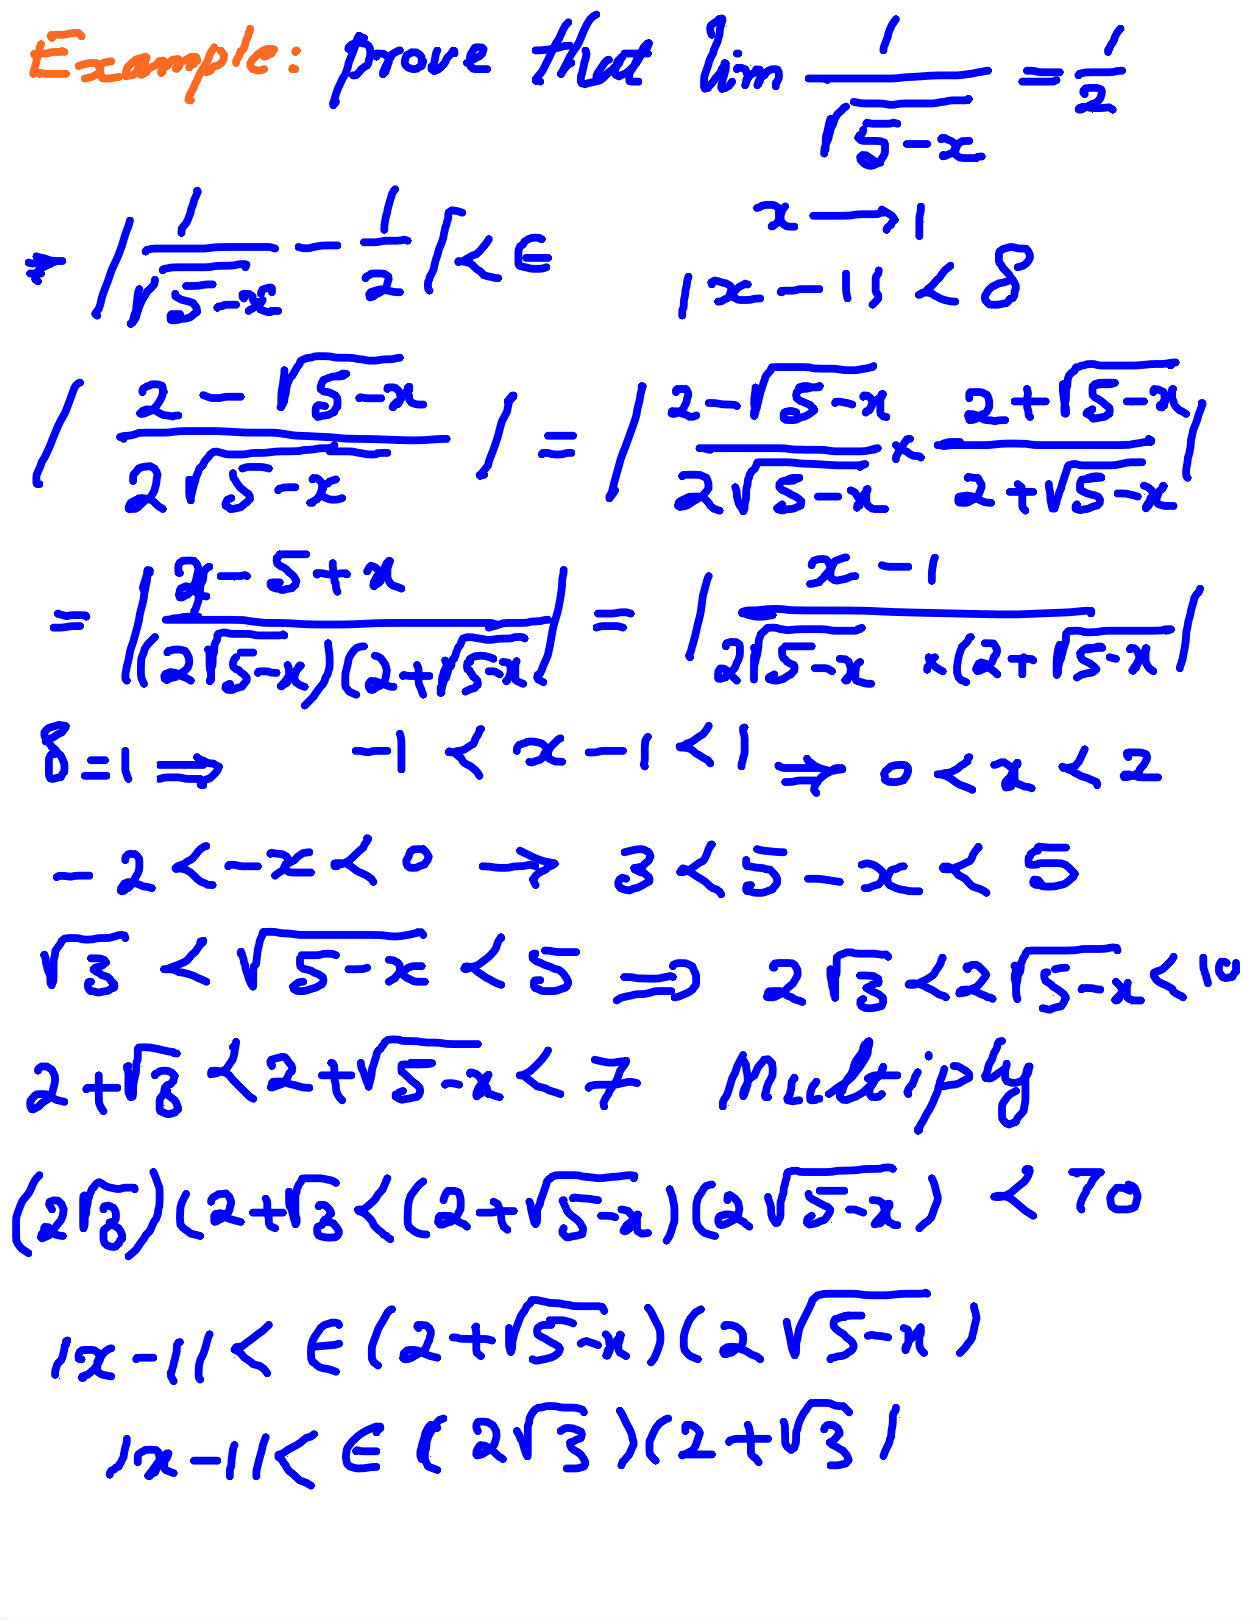 Example: prove that lim 1/√(5-x) = 1/2
x → 1
⇒ |1/√(5-x) - 1/2| < ∈ |x-1| < δ
|(2-√(5-x))/(2√(5-x))| = |(2-√(5-x))/(2√(5-x)) × (2+√(5-x))/(2+√(5-x))|
= |(4-5+x)/((2√(5-x))(2+√(5-x)))| = |(x-1)/(2√(5-x) ×(2+√(5-x))|
δ=1 ⇒ -1 < x-1 < 1 ⇒ 0 < x < 2
-2 < -x < 0 → 3 < 5-x < 5
√3 < √(5-x) < 5 ⇒ 2√3 < 2√(5-x) < 10
2+√3 < 2+√(5-x) < 7 Multiply
(2√3)(2+√3 < (2+√(5-x))(2√(5-x)) < 70
|x-1| < ∈ (2+√(5-x))(2√(5-x))
|x-1| < ∈ (2√3)(2+√3)